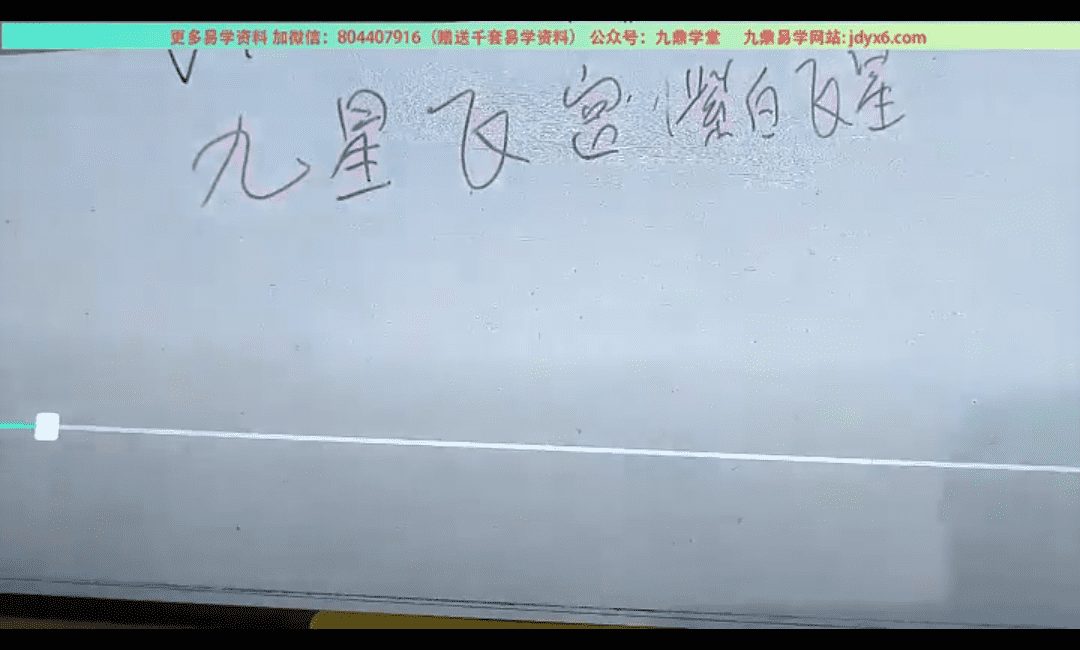 更多易学资料 加微信：804407916（赠送千套易学资料） 公众号：九鼎学堂 九鼎易学网站:jdyx6.com
九星飞宫（紫白飞星